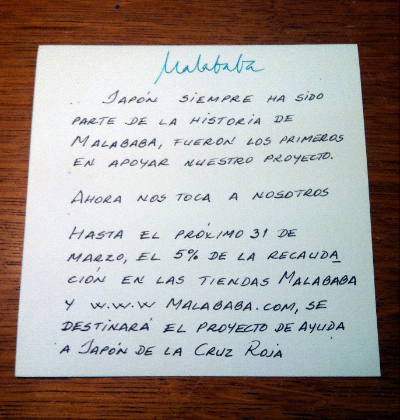 Malababa
JAPÓN SIEMPRE HA SIDO
PARTE DE LA HISTORIA DE
MALABABA, FUERON LOS PRIMEROS
EN APOYAR NUESTRO PROYECTO.
AHORA NOS TOCA A NOSOTROS
HASTA EL PRÓXIMO 31 DE
MARZO, EL 5% DE LA RECAUDA
CIÓN EN LAS TIENDAS MALABABA
Y W.W.W MALABABA.COM, SE
DESTINARÁ EL PROYECTO DE AYUDA
A JAPÓN DE LA CRUZ ROJA